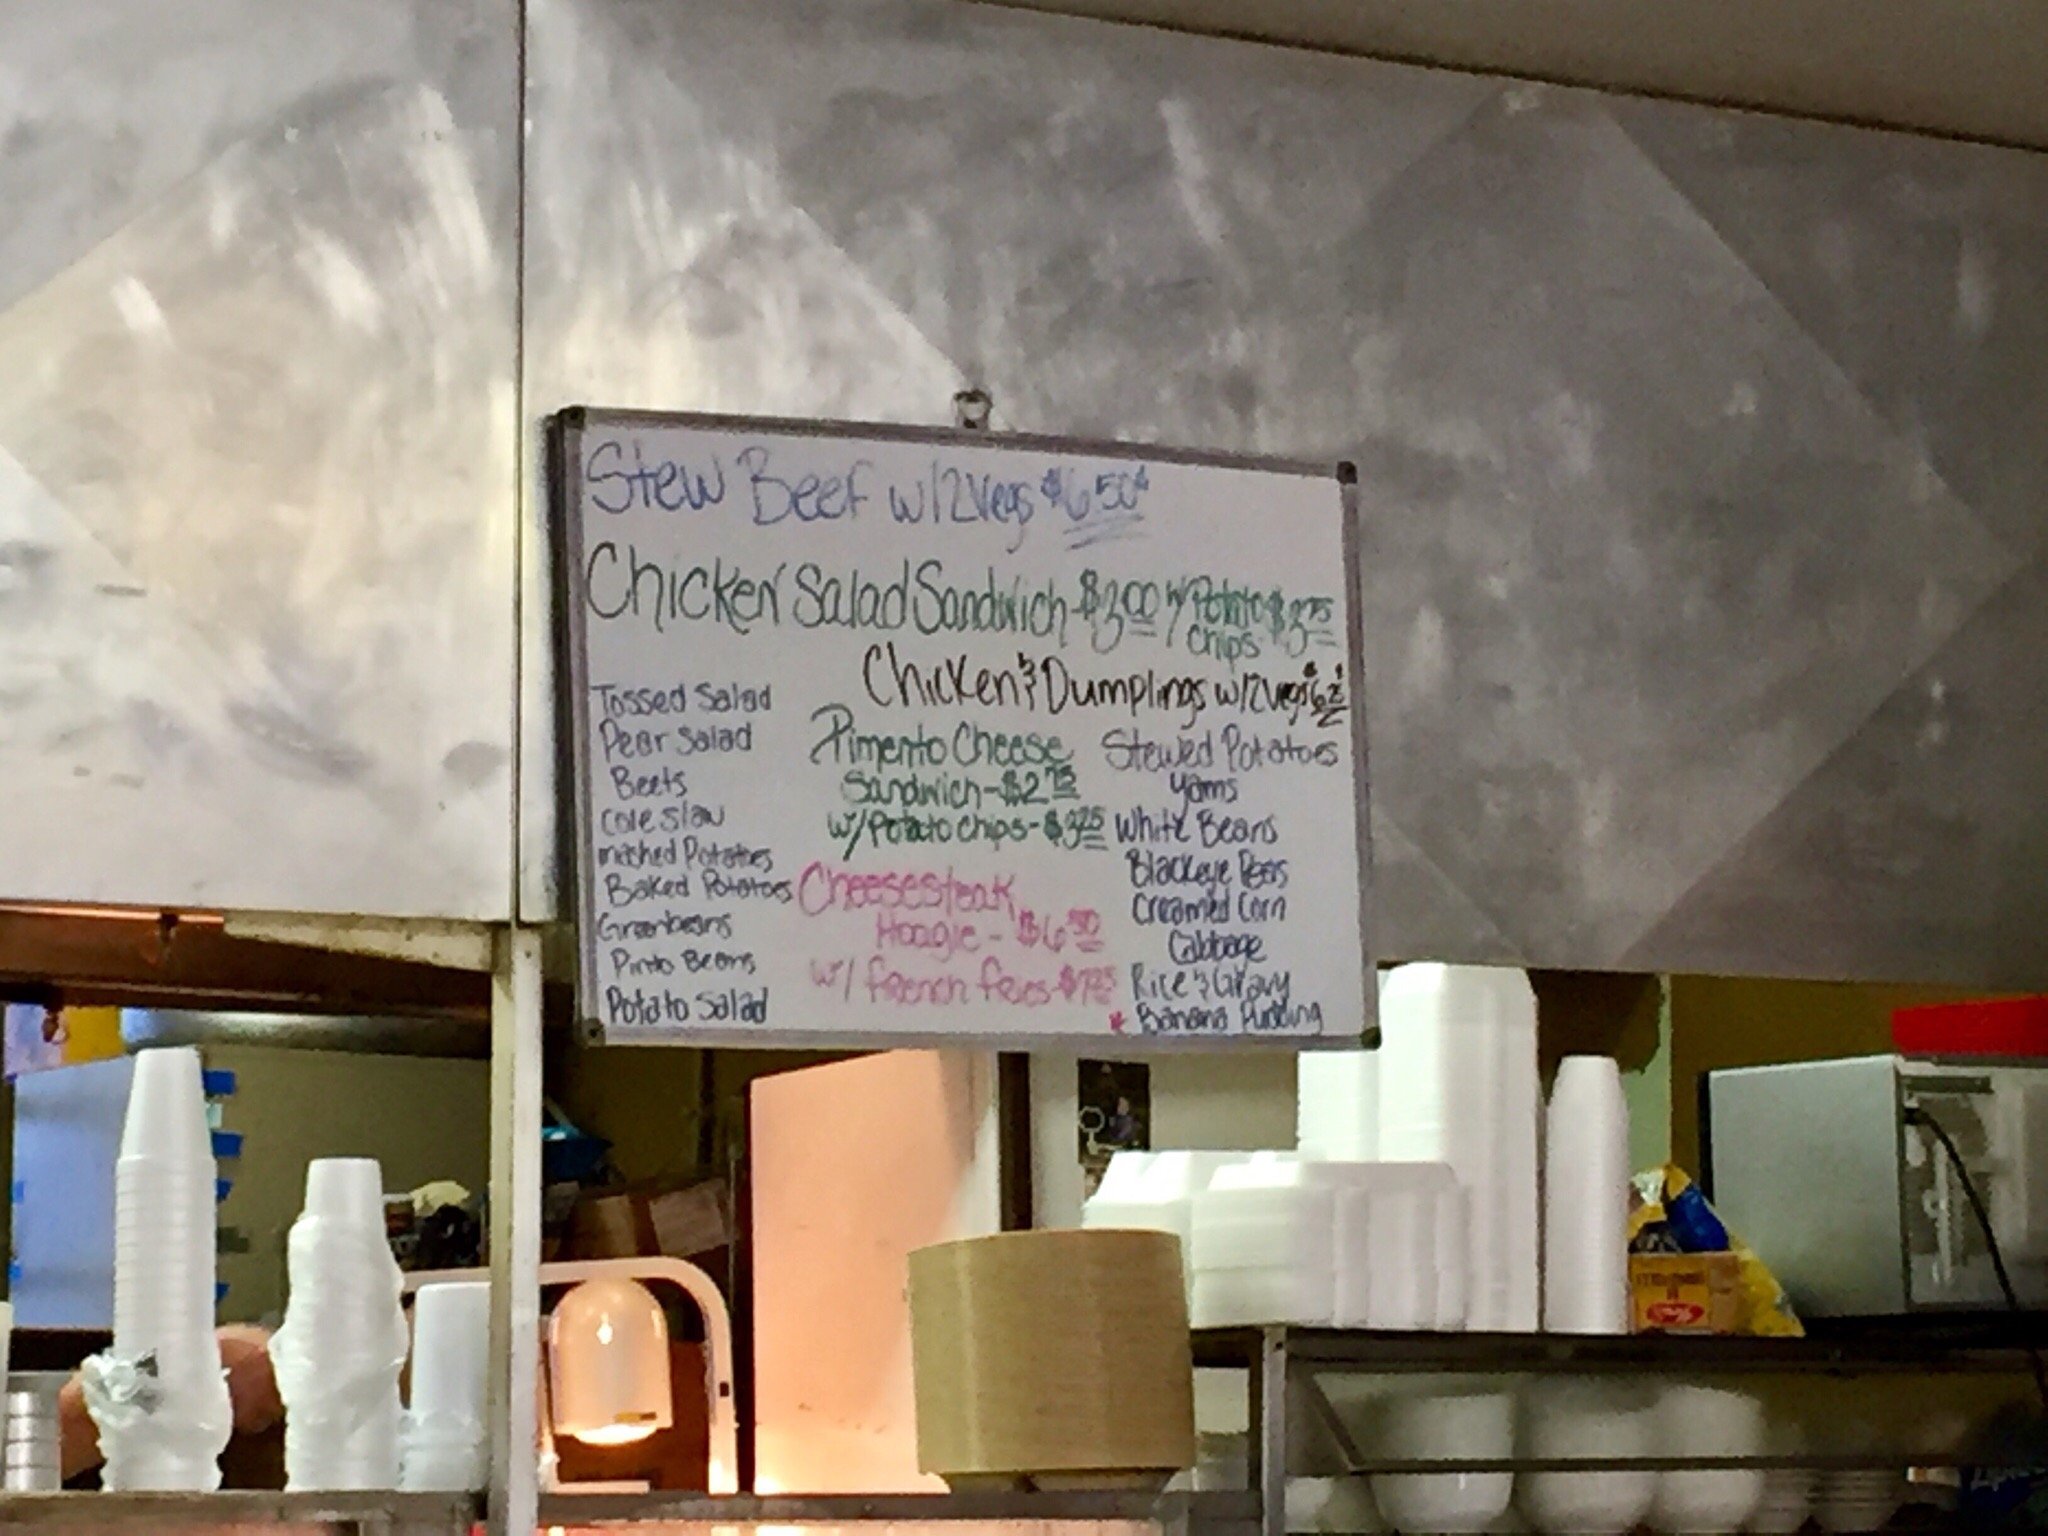 Stew Beef w/2 Vegs $6.50¢
Chicken Salad Sandwich - $3.00 w/ Potato Chips $3.75
Chicken & Dumplings w/2 Vegs
Tossed Salad
Pear Salad
Beets
Cole Slaw
Mashed Potatoes
Baked Potatoes
Greenbeans
Pinto Beans
Potato Salad
Pimento Cheese
Sandwich - $2.75
w/ Potato Chips - $3.25
Cheesesteak
Hoagie - $6.50
w/ French Fries - $7.25
Stewed Potatoes
Yams
White Beans
Blackeye Peas
Creamed Corn
Cabbage
Rice & Gravy
* Banana Pudding